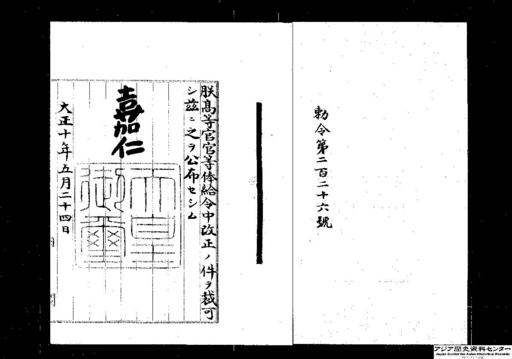 勅令第二百二十六號
朕高等官官等俸給令中改正ノ件ヲ裁可
シ茲ニ之ヲ公布セシム
嘉仁
天皇
御璽
大正十年五月二十四日
アジア歴史資料センター
Japan Center for Asian Historical Records